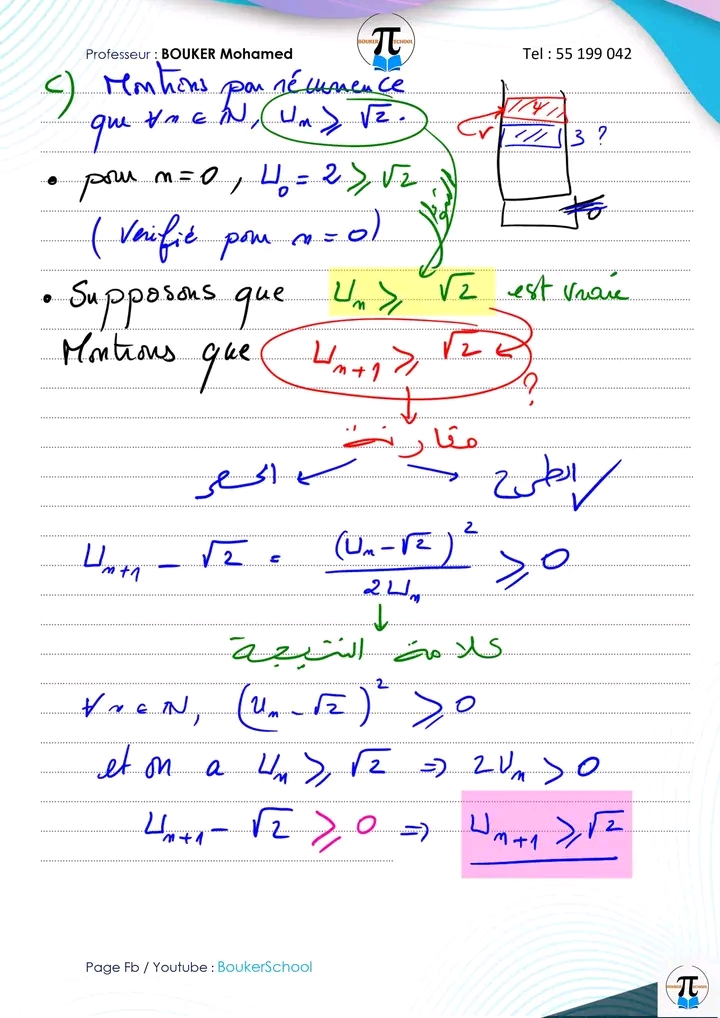 Professeur : BOUKER Mohamed
BOUKER SCHOOL
π
Tel : 55 199 042
c) Montrons par récurrence
que ∀n ∈ ℕ, Un ⩾ √2.
4
3 ?
0
• pour n=0, U0 = 2 ⩾ √2
(Vérifié pour n=0)
• Supposons que Un ⩾ √2 est vraie
Montrons que Un+1 ⩾ √2
?
مقارنة
الطرح ✓
الحصر
Un+1 - √2 = (Un-√2)^2 / 2Un ⩾ 0
علامة النتيجة
∀n ∈ ℕ, (Un-√2)^2 ⩾ 0
et on a Un ⩾ √2 ⇒ 2Un > 0
Un+1 - √2 ⩾ 0 ⇒ Un+1 ⩾ √2
Page Fb / Youtube : BoukerSchool
π
BOUKER SCHOOL